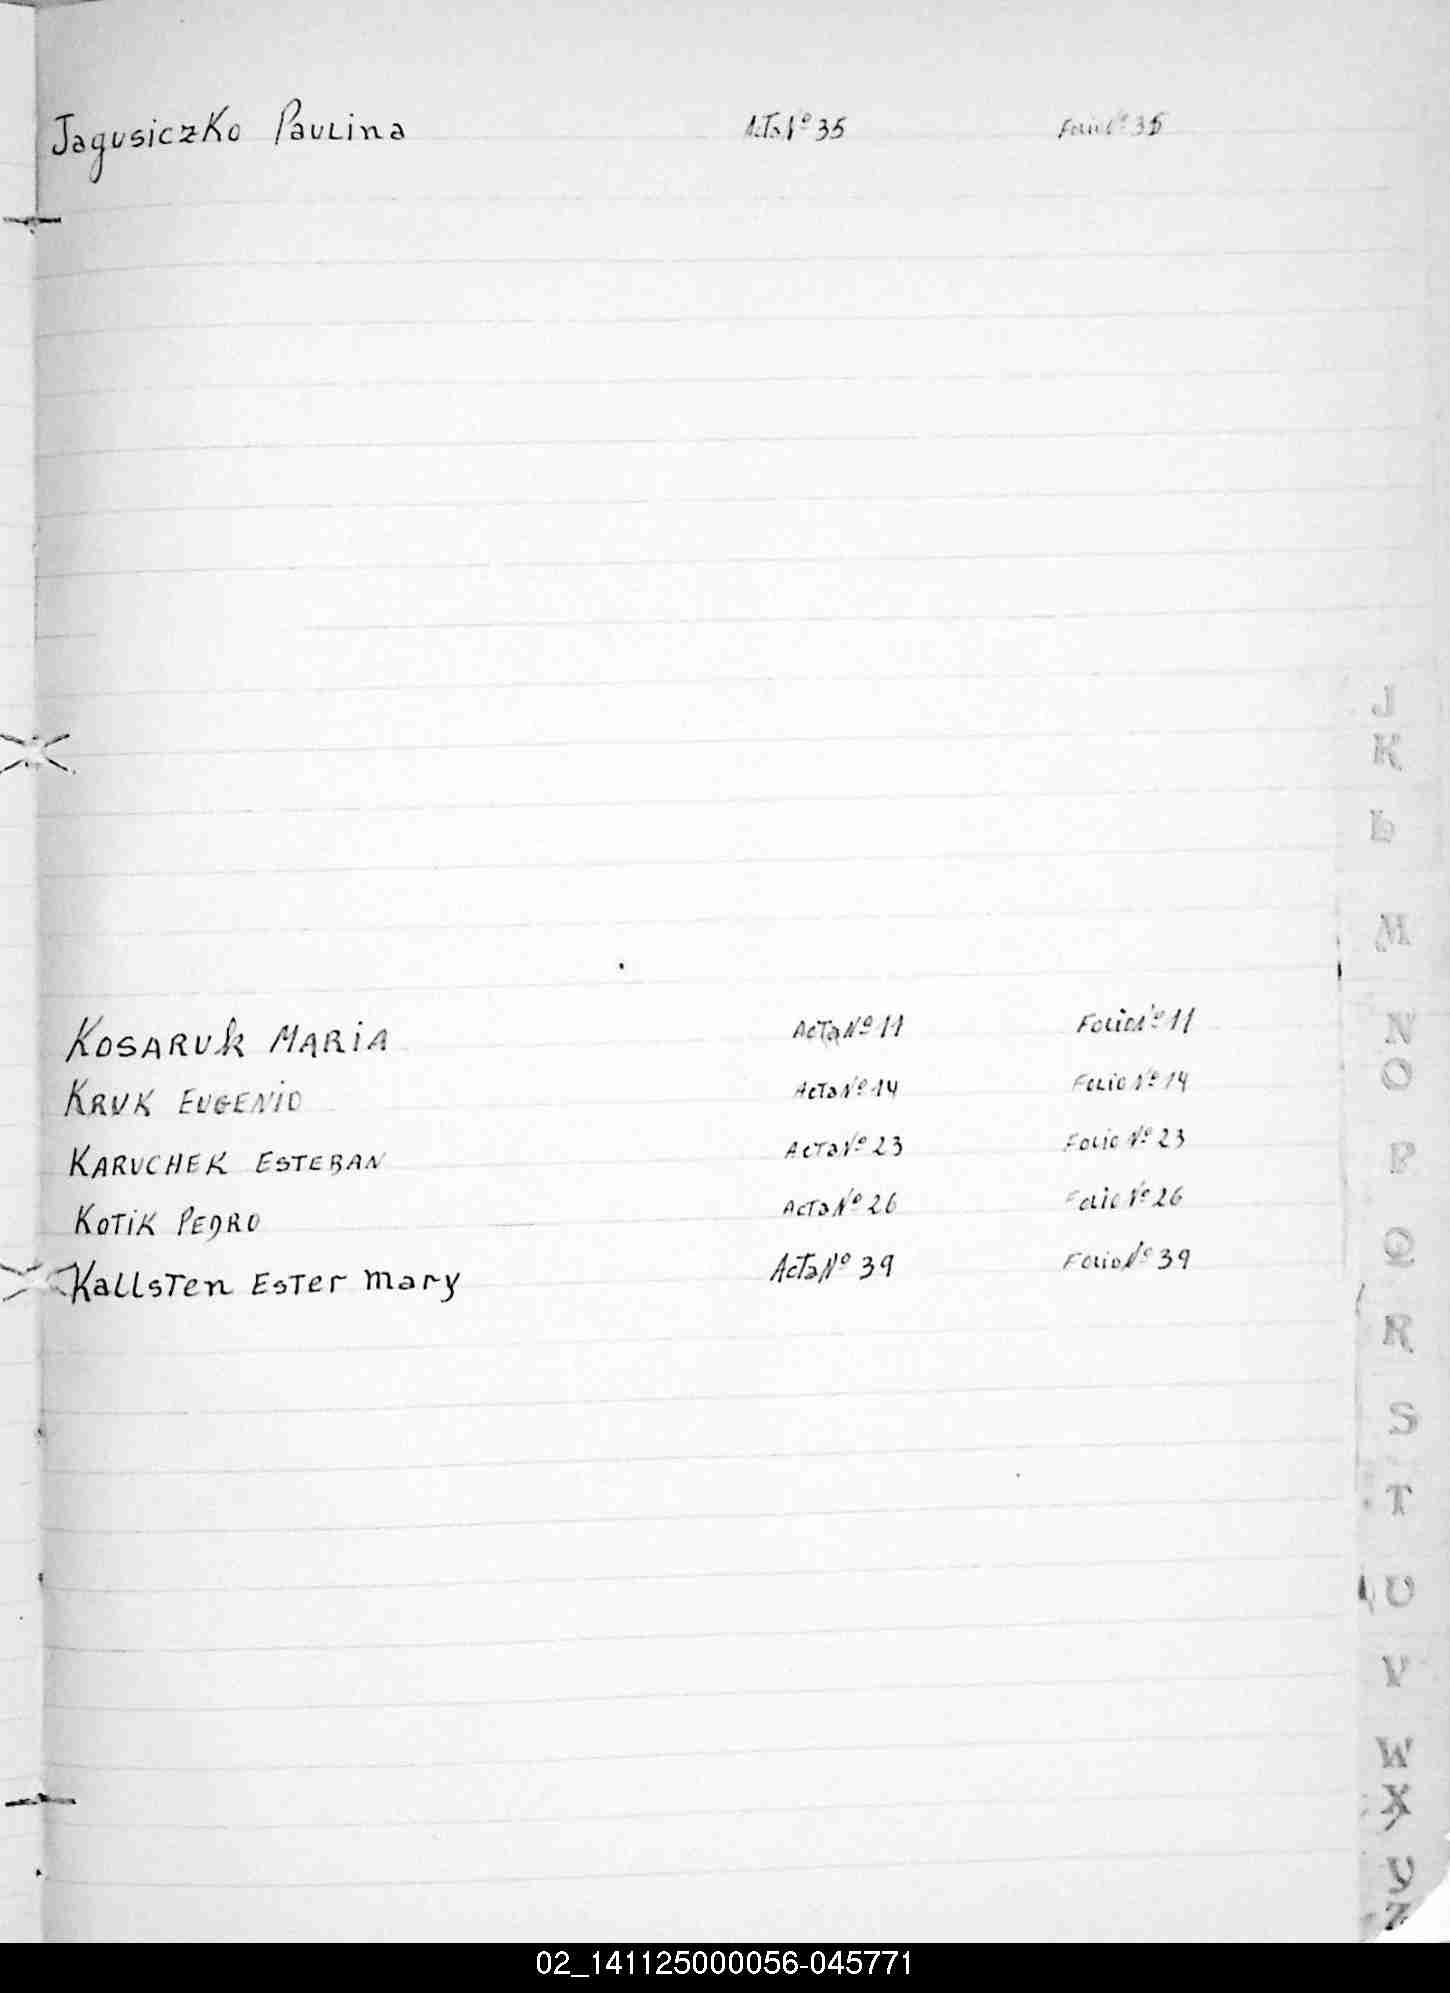 Jagusiczko Paulina Acta Nº 35 Folio Nº 35
J
K
L
M
KOSARUK MARIA Acta Nº 11 Folio Nº 11
N
O
KRUK EUGENIO Acta Nº 14 Folio Nº 14
KARUCHEK ESTEBAN Acta Nº 23 Folio Nº 23
P
KOTIK PEDRO Acta Nº 26 Folio Nº 26
Q
Kallsten Ester Mary Acta Nº 39 Folio Nº 39
R
S
T
U
V
W
X
Y
Z
02_141125000056-045771